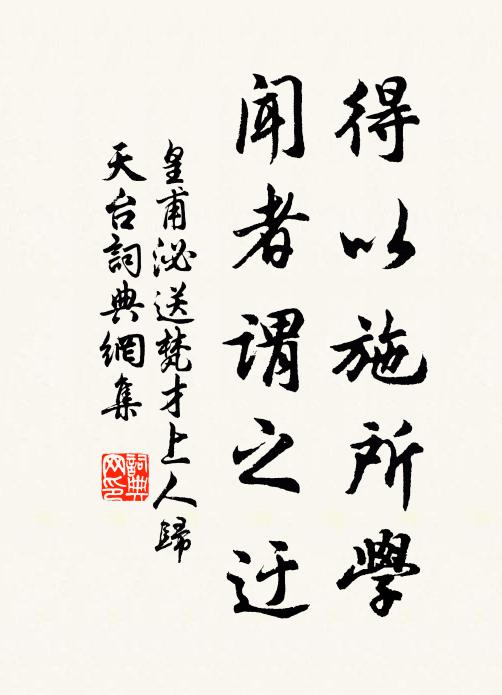 得以施所學
聞者謂之迂
皇甫泌送梵才上人歸
天台詞典網集
詞典
网印